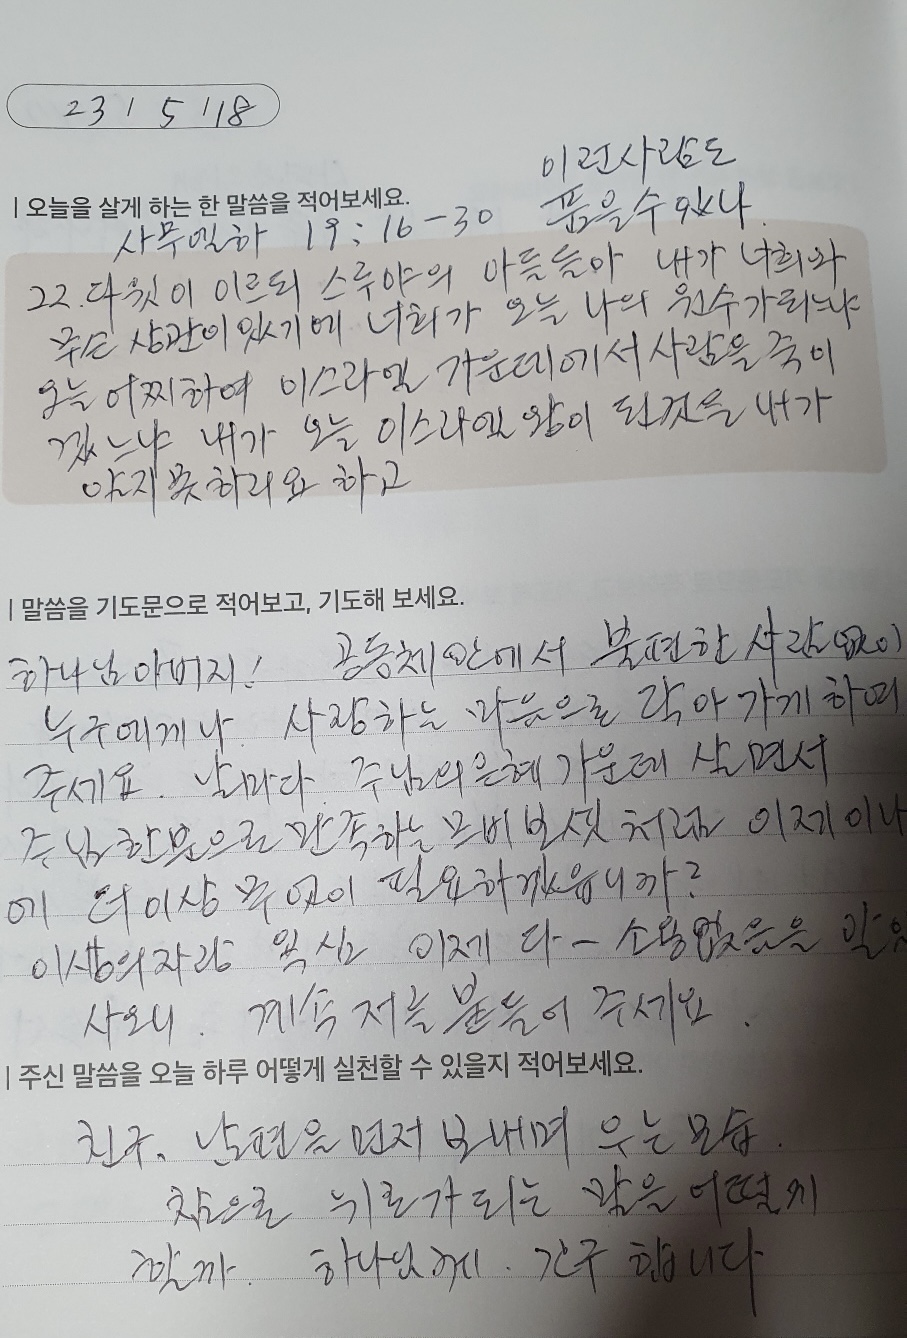 23 / 5 / 18
이런사람도
| 오늘을 살게 하는 한 말씀을 적어보세요.
품을수 있나.
사무엘하 19:16-30
22. 다윗이 이르되 스루야의 아들들아 내가 너희와
무슨 상관이 있기에 너희가 오늘 나의 원수가 되느냐
오늘 어찌하여 이스라엘 가운데에서 사람을 죽이
겠느냐 내가 오늘 이스라엘 왕이 된것을 내가
알지 못하리요 하고
| 말씀을 기도문으로 적어보고, 기도해 보세요.
하나님아버지! 공동체 안에서 불편한 사람없이
누구에게나 사랑하는 마음으로 닥아 가게 하여
주세요. 날마다 주님의은혜 가운데 살면서
주님 한분으로 만족하는 므비보셋 처럼 이제 이나
에 더이상 무엇이 필요하겠습니까?
이생의자랑 욕심 이제 다- 소용없음을
사오니. 계속 저를 붇들어 주세요.
| 주신 말씀을 오늘 하루 어떻게 실천할 수 있을지 적어보세요.
친구. 남편을 먼저 보내며 우는 모습.
참으로 위로가 되는 말을 어떻게
할까. 하나님께. 간구 합니다